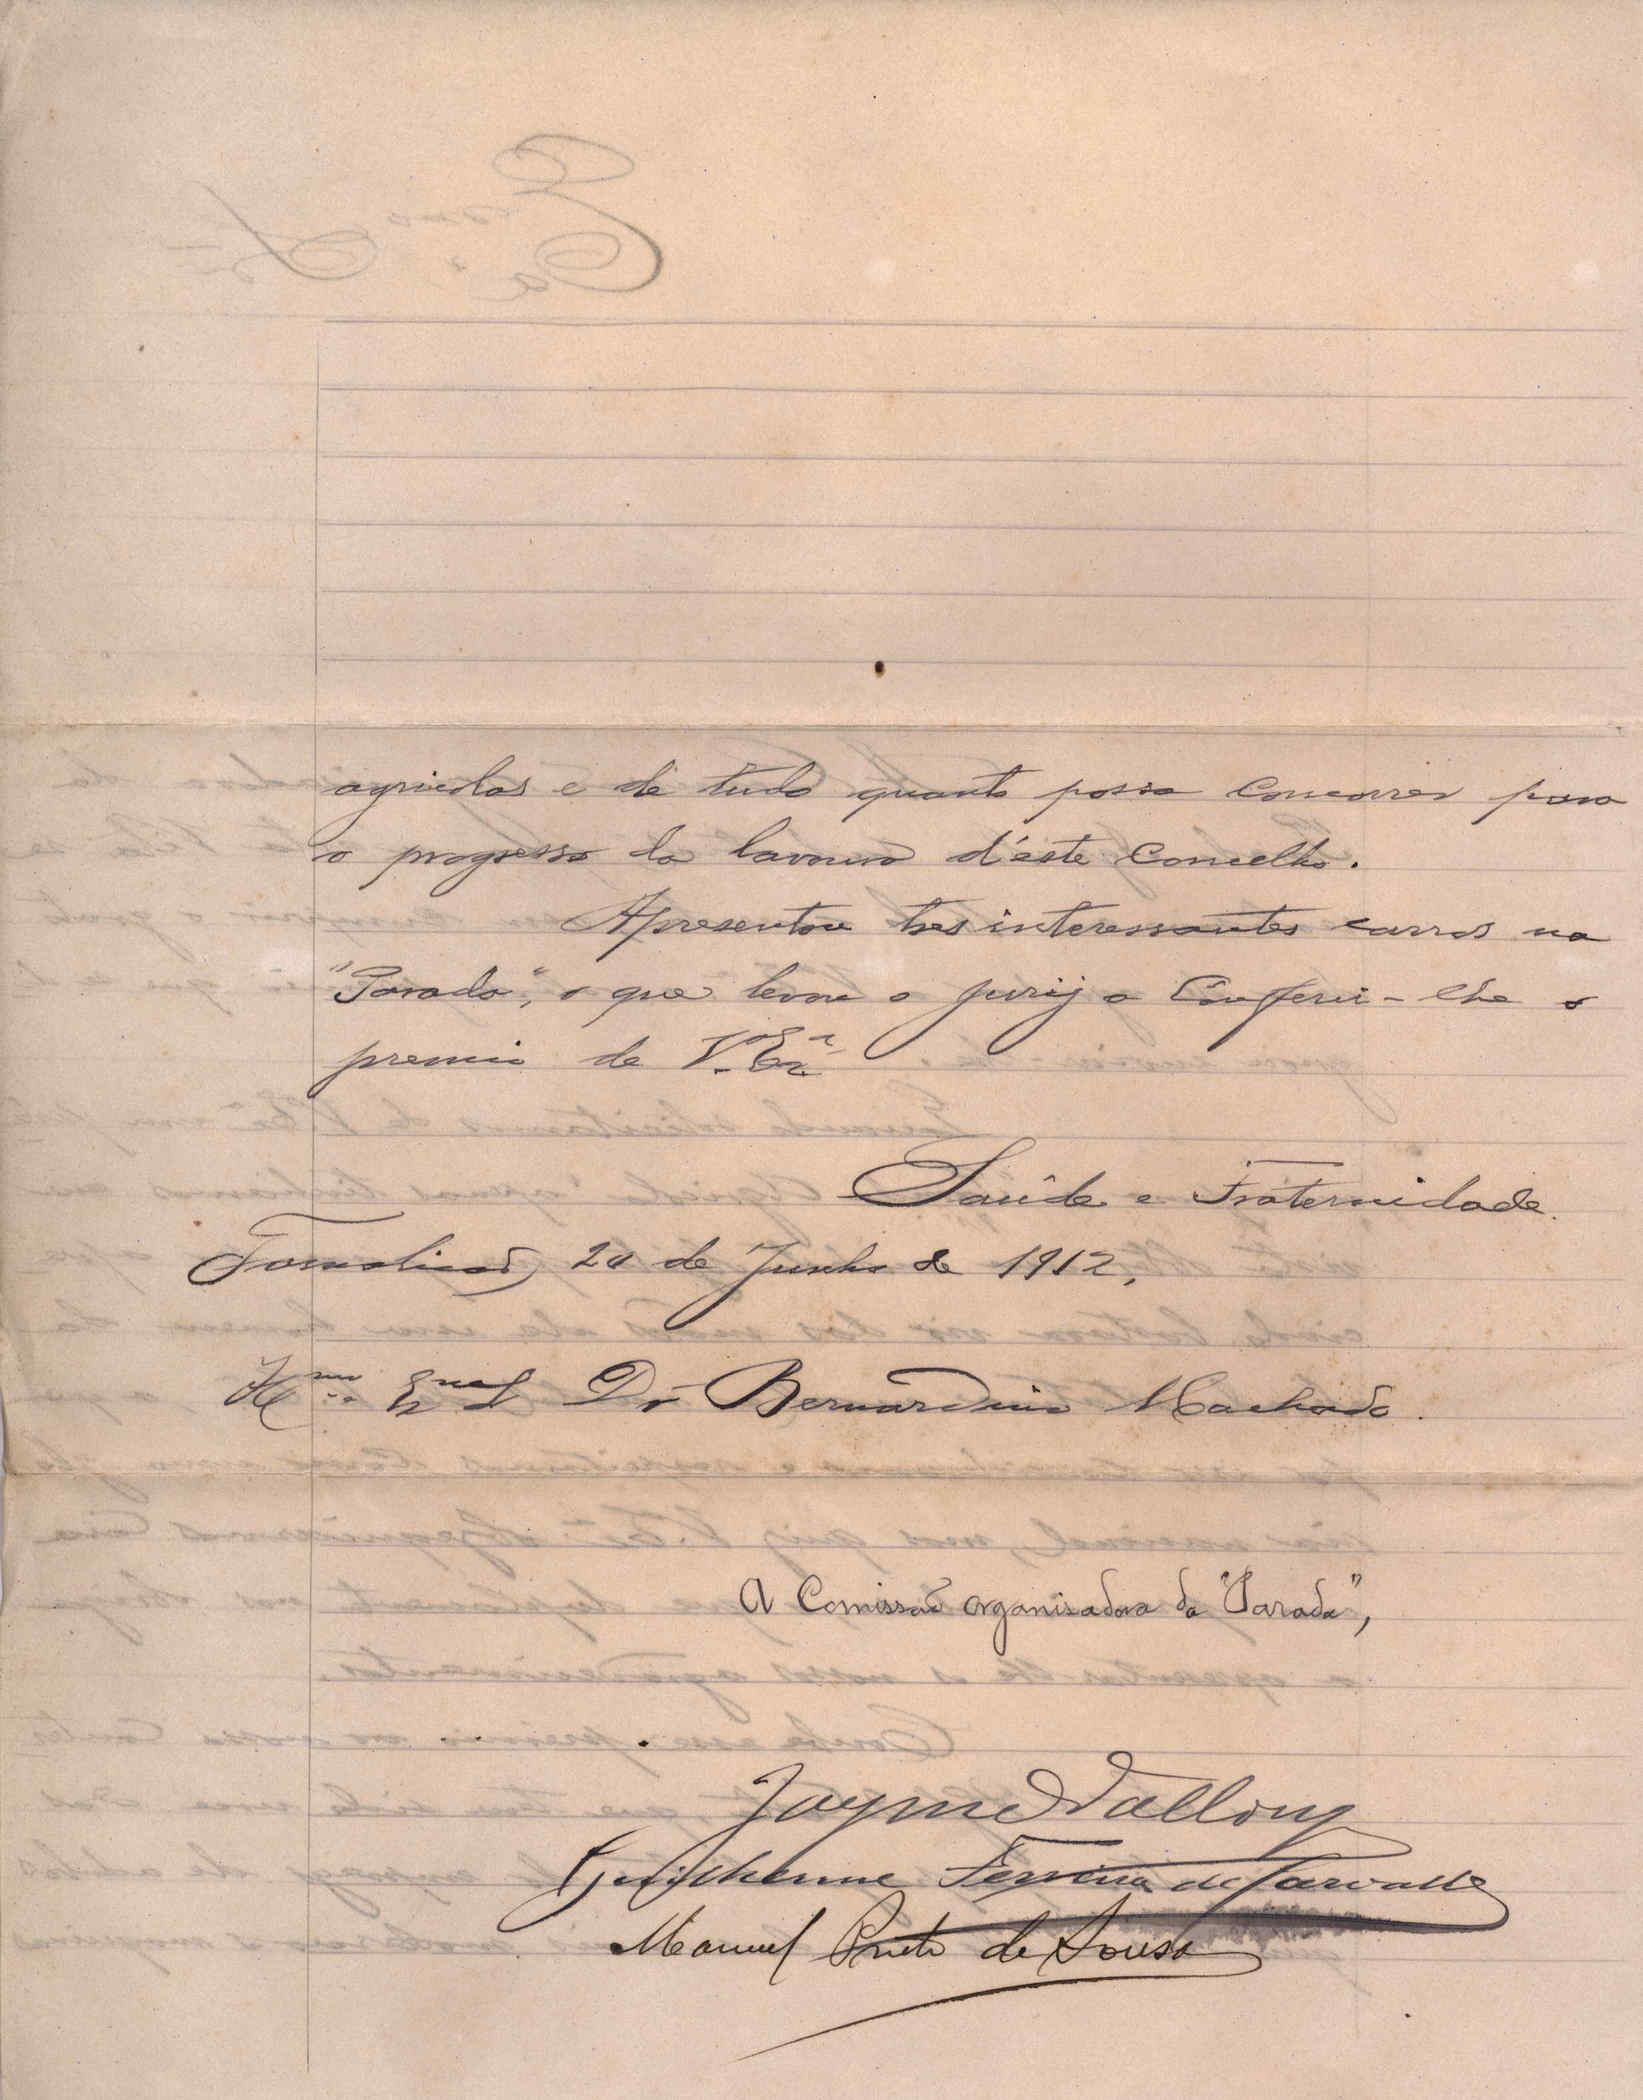 agricolas e de tudo quanto possa concorrer para
o progresso da lavoura d'este concelho.
Apresentou tres interessantes carros na
"Parada", o que levou o jury a conferir-lhe o
premio de V. Exª
Saúde e Fraternidade.
Famalicão, 20 de Junho de 1912,
Illmo Exmo Sr Dr Bernardino Machado.
A Comissão organisadora da "Parada",
Jayme Vallong
Guilherme Ferreira de Carvalho
Manuel Pinto de Sousa